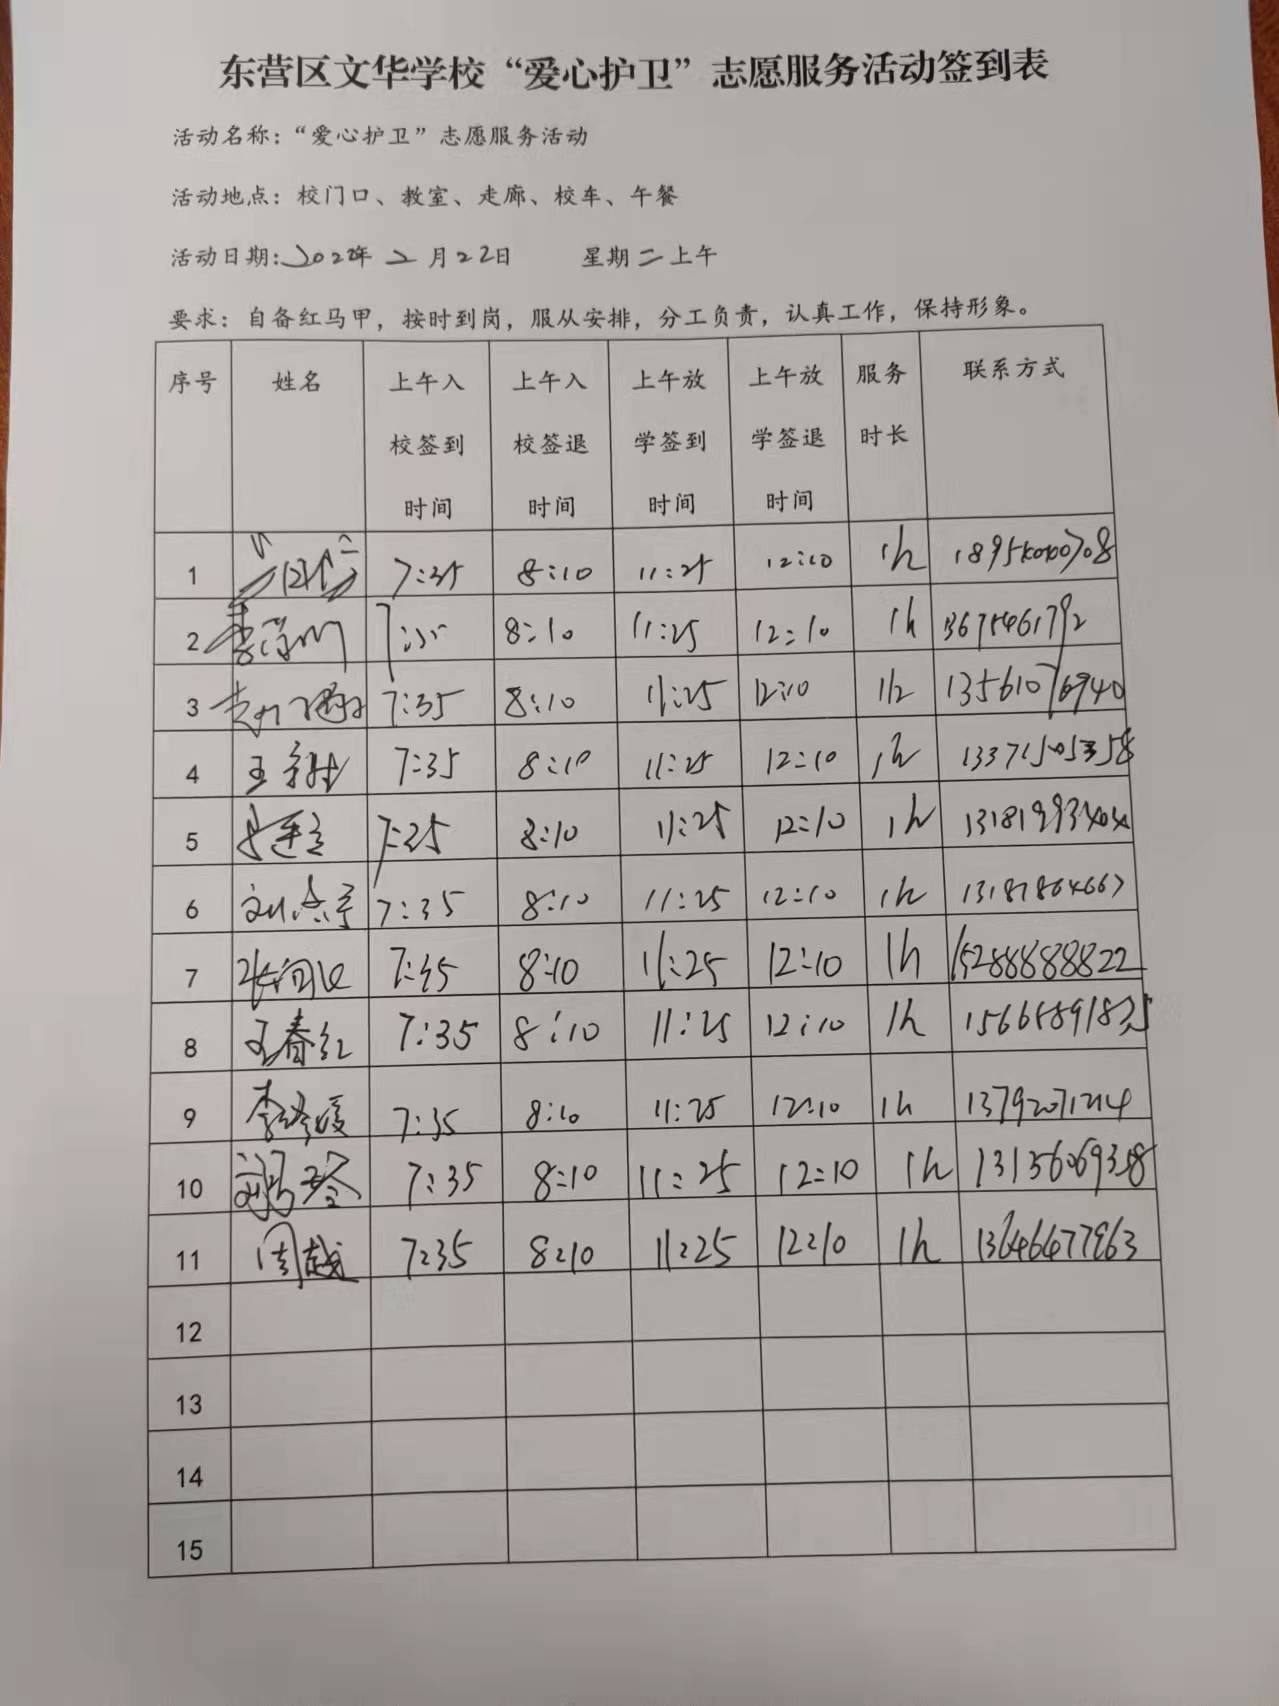 东营区文华学校“爱心护卫”志愿服务活动签到表
活动名称：“爱心护卫”志愿服务活动
活动地点：校门口、教室、走廊、校车、午餐
活动日期：2022年 2 月22日 星期二上午
要求：自备红马甲，按时到岗，服从安排，分工负责，认真工作，保持形象。
序号 姓名 上午入校签到时间 上午入校签退时间 上午放学签到时间 上午放学签退时间 服务时长 联系方式
1 7:35 8:10 11:25 12:10 1h
2 8:10 11:25 12:10 1h
3 7:35 8:10 11:25 12:10 1h 13561076940
4 王 7:35 8:10 11:25 12:10 1h 13371505358
5 8:10 11:25 12:10 1h
6 刘 7:35 8:10 11:25 12:10 1h 13181864667
7 8:10 11:25 12:10 1h 15288888822
8 王春红 7:35 8:10 11:25 12:10 1h
9 李 媛 7:35 8:10 11:25 12:10 1h
10 7:35 8:10 11:25 12:10 1h
11 周越 7:35 8:10 11:25 12:10 1h
12
13
14
15